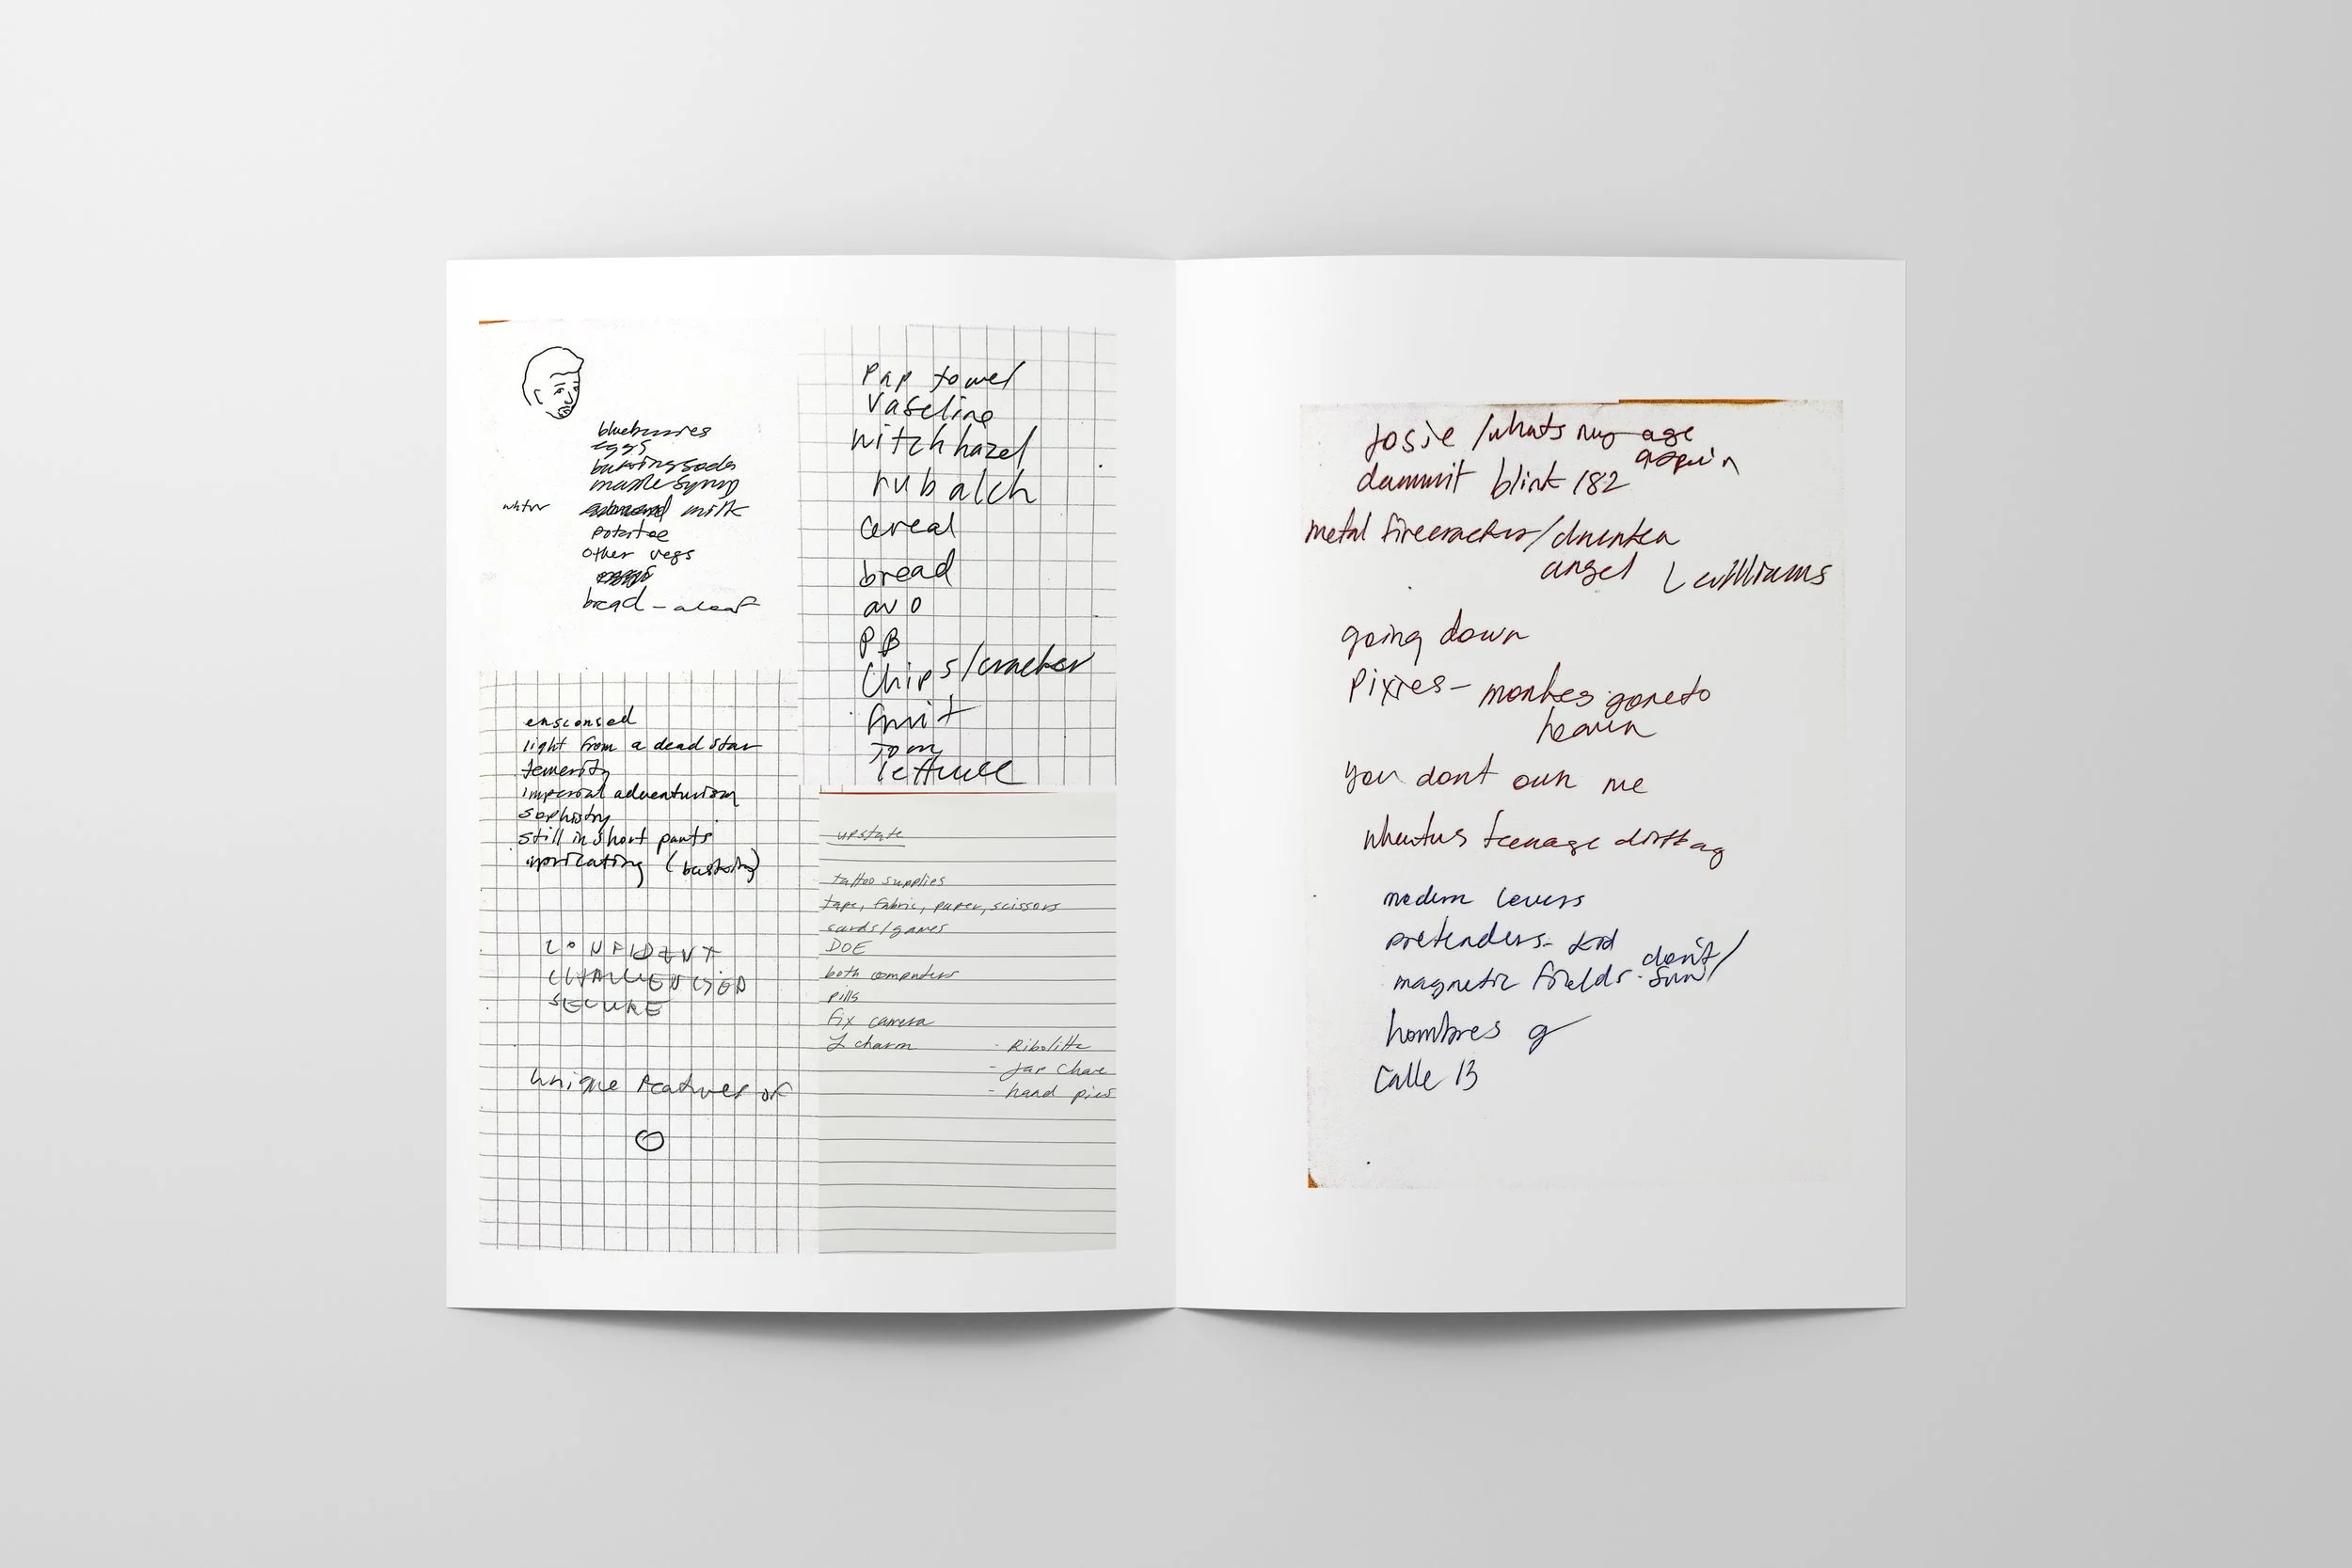 blueberries
eggs
baking soda
maple syrup
whtvr milk
potatoe
other vegs
bread - a loaf
Pap towel
Vaseline
witch hazel
rub alch
cereal
bread
avo
PB
Chips/cracker
fruit
Tom
lettuce
ensconsed
light from a dead star
temerity
imperial adventurism
sophistry
still in short pants
apricating (basking)
CONFIDENT
CHALLENGED
SECURE
unique features of
upstate
tattoo supplies
tape, fabric, paper, scissors
cards/games
DOE
both computers
pills
fix camera
L charm
- Ribollita
- jap
- hand pies
josie /whats my age
again
dammit blink 182
metal firecracker/drunken
angel L williams
going down
Pixies - monkey gone to
heaven
you dont own me
wheatus teenage dirtbag
modern lovers
pretenders - kid
magnetic fields - don't/
hombres g
Calle 13